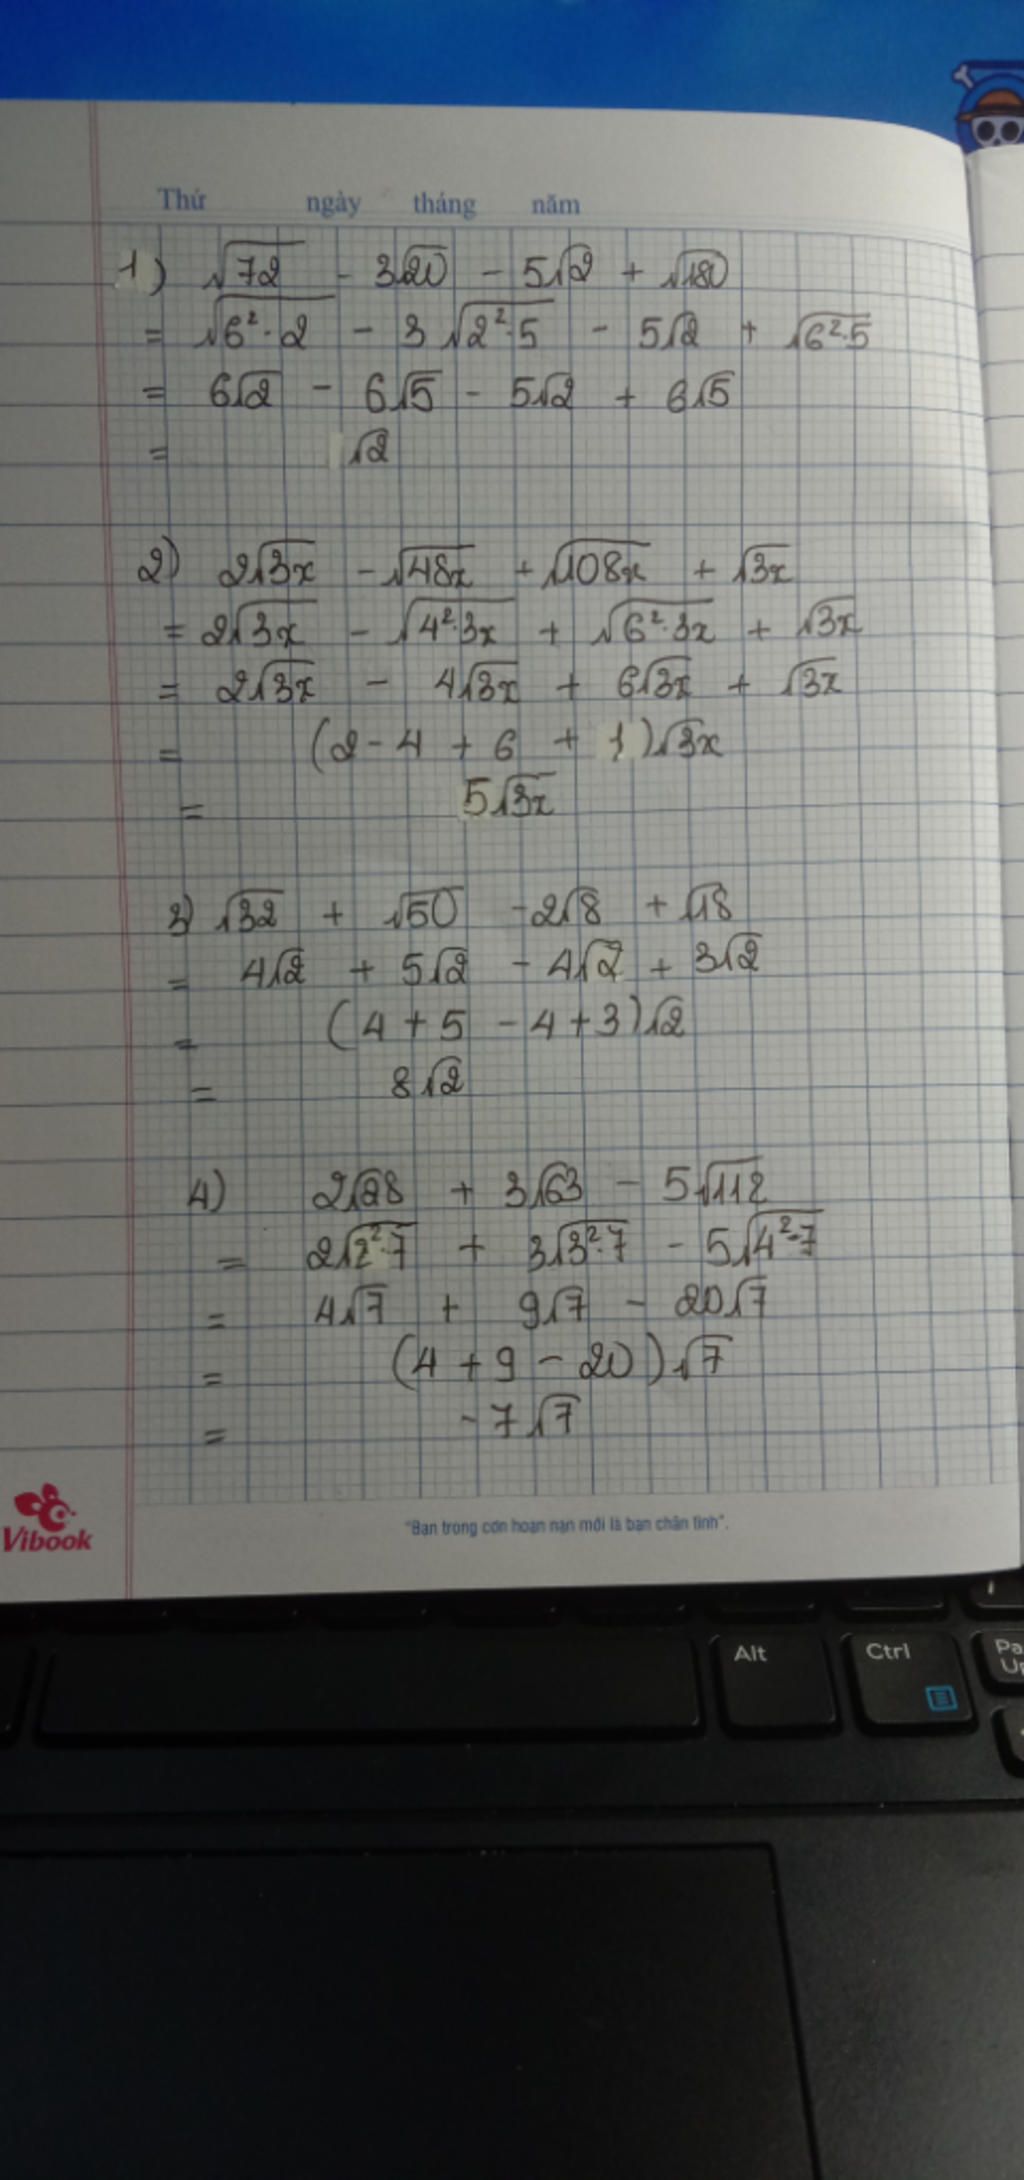 Thứ ngày tháng năm
1) √72 - 3√20 - 5√2 + √180
= √6²·2 - 3√2²·5 - 5√2 + √6²·5
= 6√2 - 6√5 - 5√2 + 6√5
= √2
2) 2√3x - √48x + √108x + √3x
= 2√3x - √4²·3x + √6²·3x + √3x
= 2√3x - 4√3x + 6√3x + √3x
= (2 - 4 + 6 + 1)√3x
= 5√3x
3) √32 + √50 - 2√8 + √18
= 4√2 + 5√2 - 4√2 + 3√2
= (4 + 5 - 4 + 3)√2
= 8√2
4) 2√28 + 3√63 - 5√112
= 2√2²·7 + 3√3²·7 - 5√4²·7
= 4√7 + 9√7 - 20√7
= (4 + 9 - 20)√7
= -7√7
Vibook
"Bạn trong cơn hoạn nạn mới là bạn chân tình".
Alt Ctrl